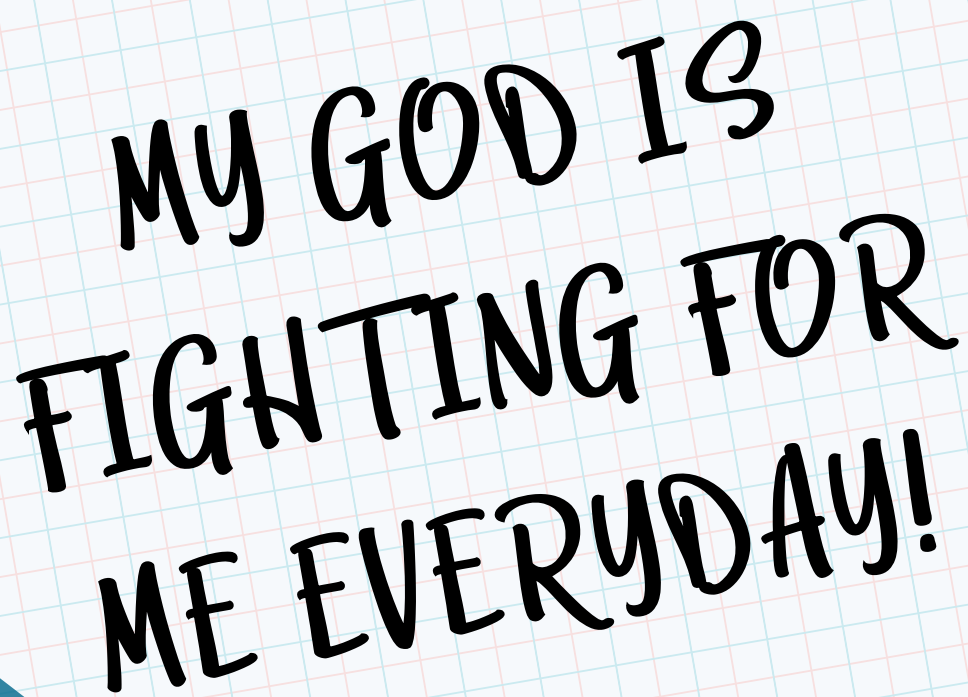 MY GOD IS
FIGHTING FOR
ME EVERYDAY!